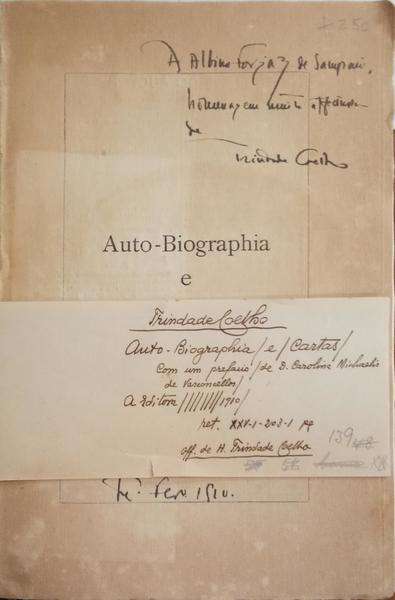 A Albino Forjaz de Sampaio,
homenagem muito affectuosa
de
Trindade Coelho
Auto-Biographia
e
Trindade Coelho
Auto-Biographia/e/Cartas/
Com um prefacio/de D. Carolina Michaëlis
de Vasconcellos/
A Editora///////1910/
ret. XXV-1-203-1 pg
off. de H. Trindade Coelho
139
56
Fev. 1910.